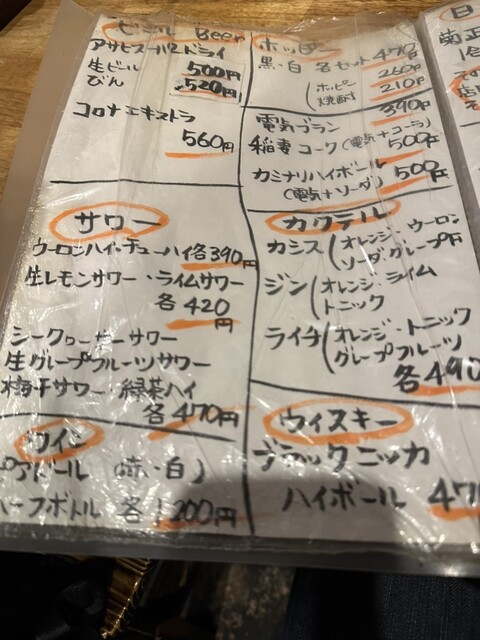 ビール Beer
アサヒスーパードライ
生ビール 500円
びん 520円
コロナエキストラ
560円
サワー
ウーロンハイ・チューハイ各390円
生レモンサワー・ライムサワー
各420円
シークワーサーサワー
生グレープフルーツサワー
梅干サワー 緑茶ハイ
各470円
ワイン
(赤・白)
ハーフボトル 各1200円
ホッピー
黒・白 各セット 470円
ホッピー 260円
焼酎 210円
電気ブラン 390円
稲妻コーク(電気+コーラ) 500円
カミナリハイボール 500円
(電気+ソーダ)
カクテル
カシス(オレンジ・ウーロン
ソーダ・グレープ
ジン(オレンジ・ライム
トニック
ライチ(オレンジ・トニック
グレープフルーツ
各490
ウィスキー
ブラックニッカ
ハイボール 47